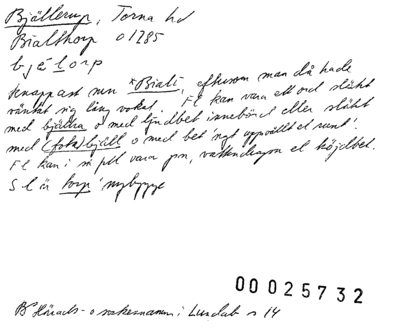 Bjällerup, Torna hd
Bialthorp o 1285
bjélorp
Knappast mn *Bialti, eftersom man då hade
väntat sig lång vokal. Fl kan vara ett ord släkt
med bjällra o med ljudbet innebörd eller släkt
med (fota)bjäll o med bet 'ngt uppvällt el runt'.
Fl kan i så fall vara pn, vattendragsn el höjdbet.
S l är torp 'nybygge'
00025732
Härads- o sockennamn i Lundab s 14